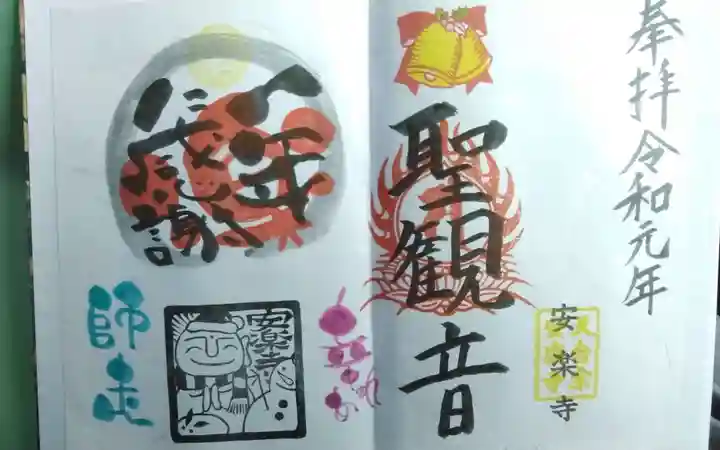 奉拝令和元年
聖観音
安楽寺
一年
感謝
安楽寺
師走